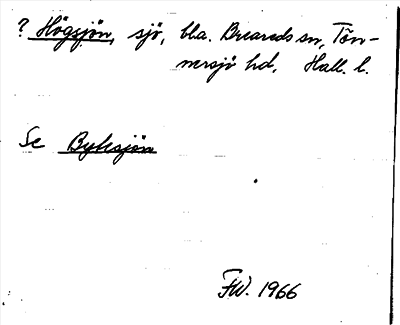 ? Högsjön, sjö, bla. Breareds sn, Tön-
nersjö hd, Hall. l.
Se Byksjön
FW. 1966